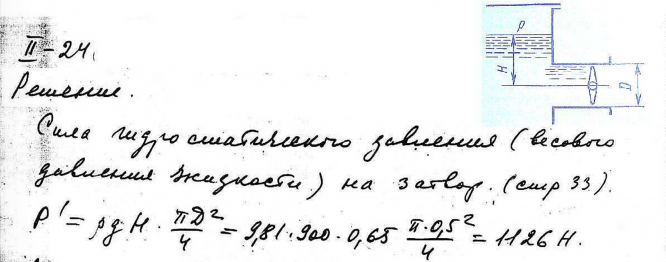 II-24.
p
H
D
Решение.
Сила гидростатического давления (весового
давления жидкости) на затвор. (стр 33).
P' = ρgH · πD²/4 = 9,81·900·0,65 π·0,5²/4 = 1126 Н.